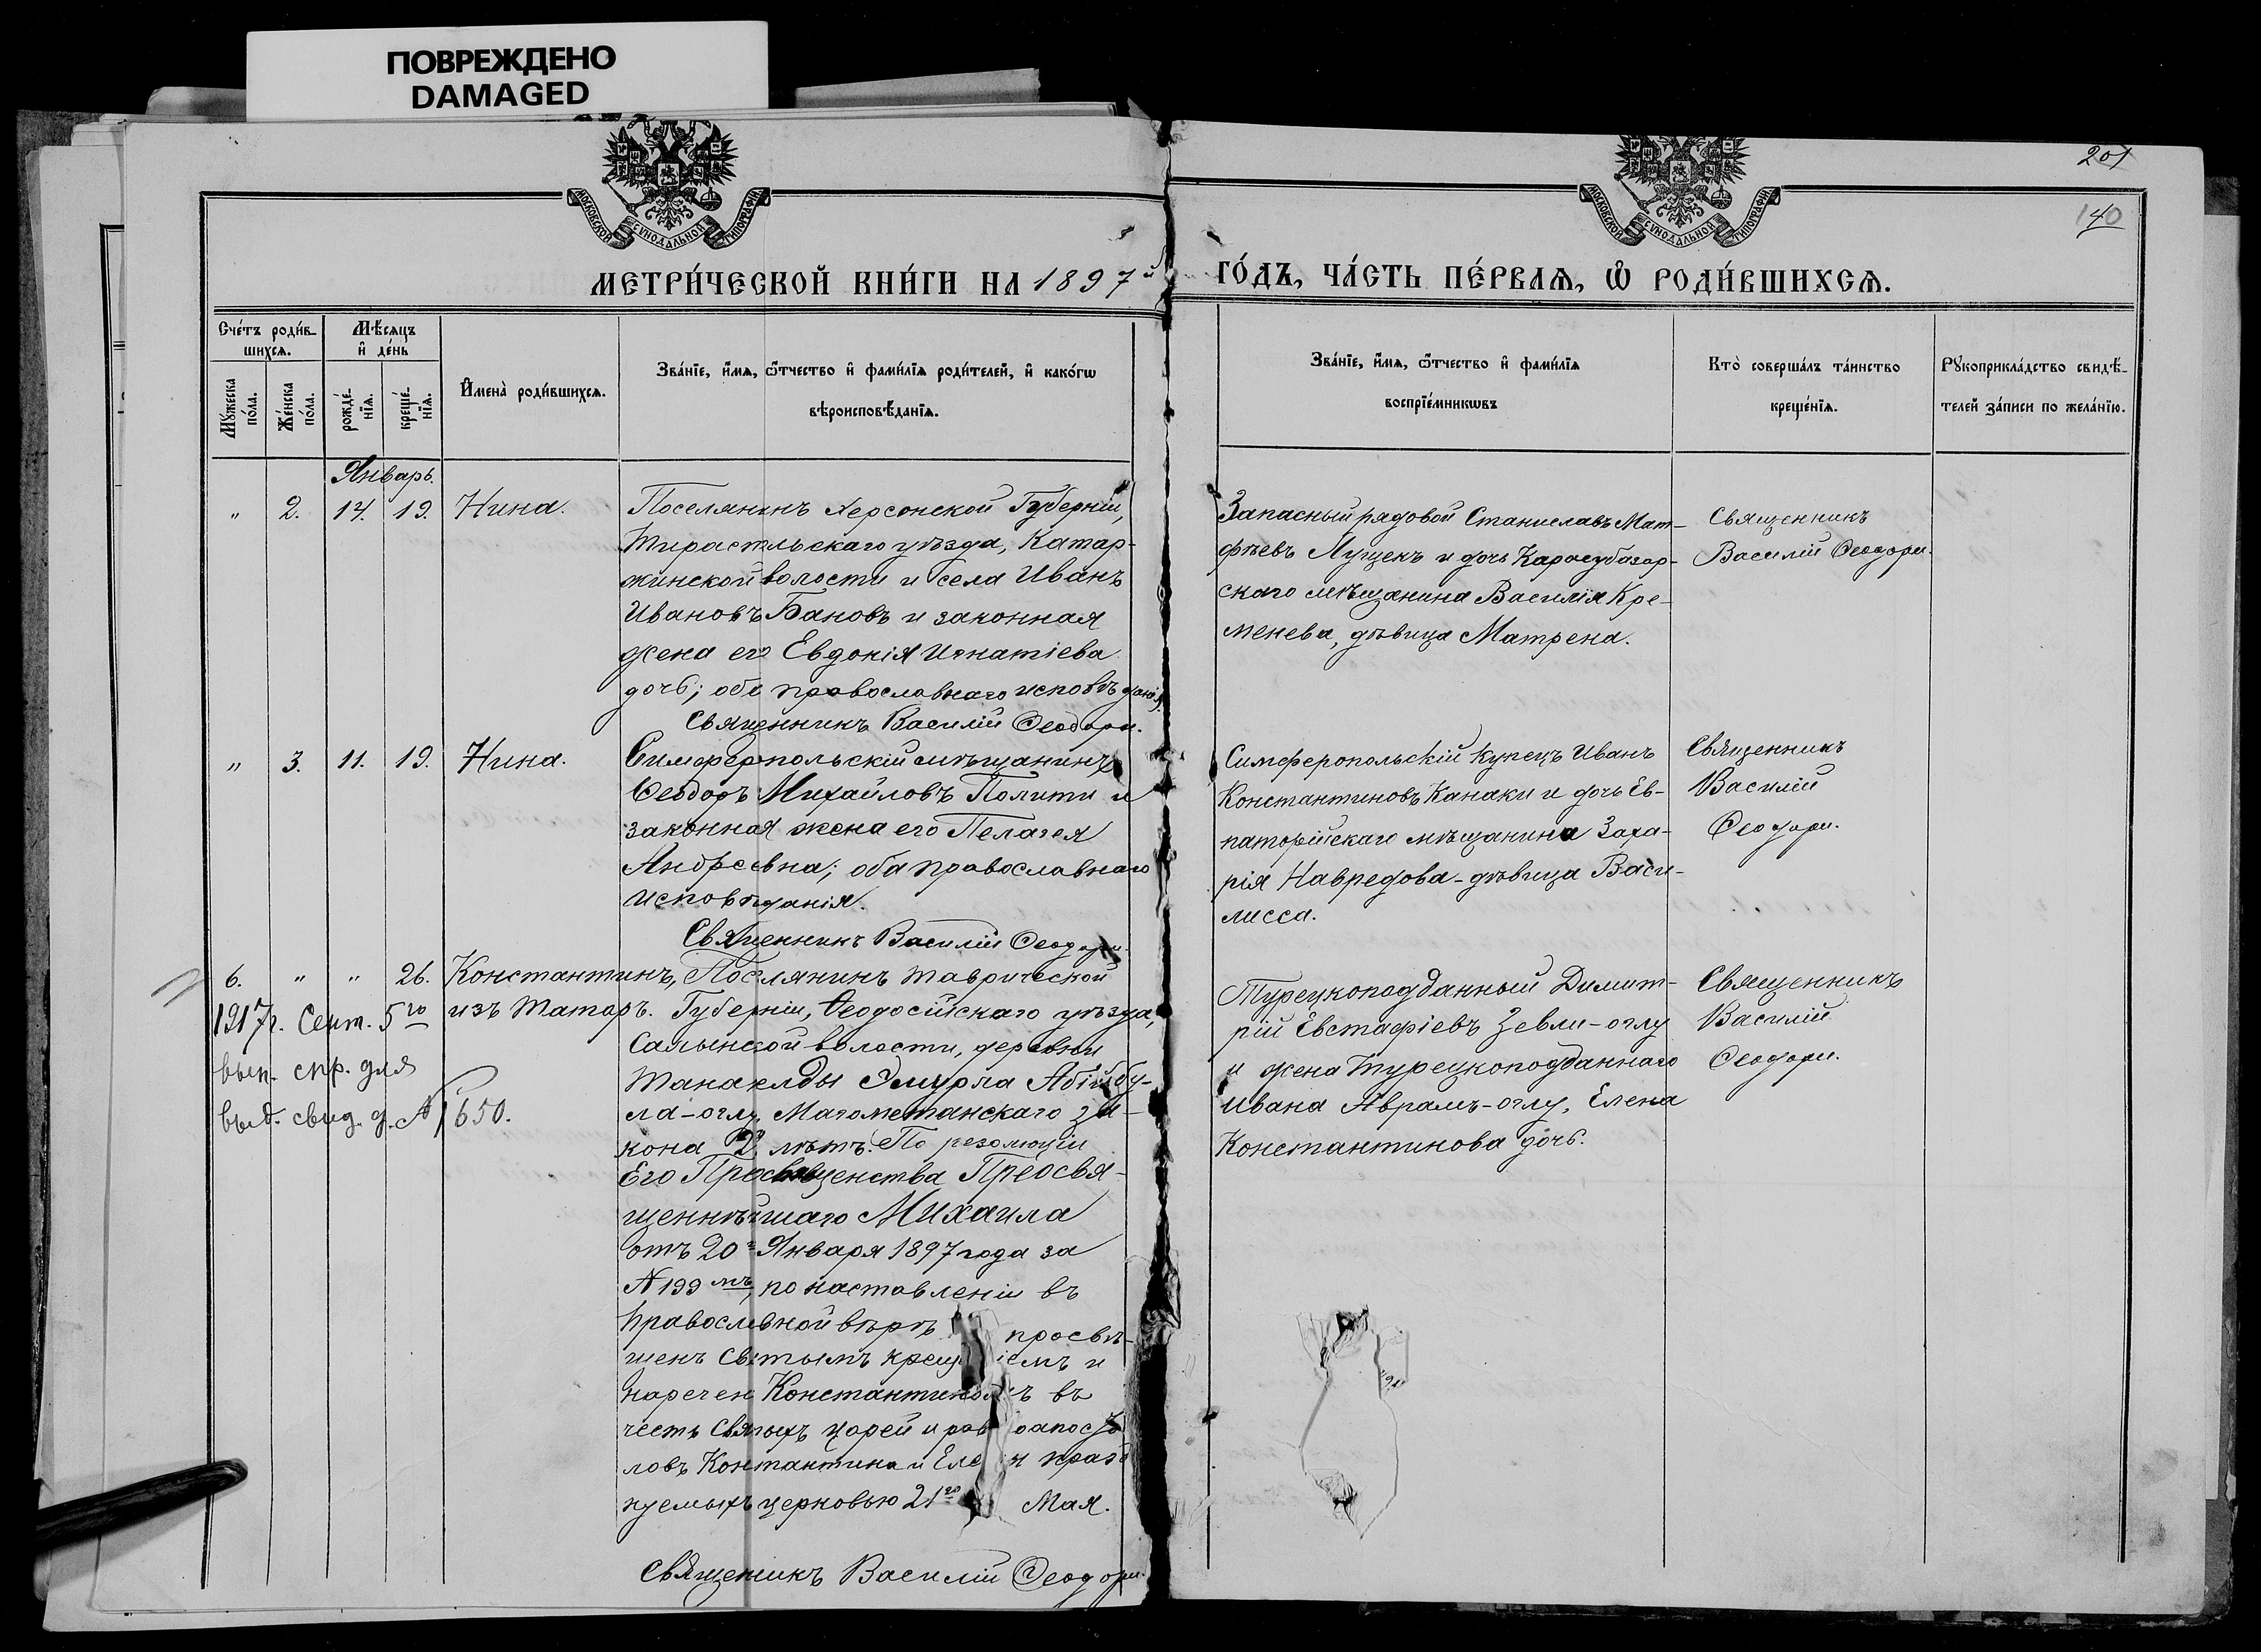 ПОВРЕЖДЕНО
DAMAGED
МОСКОВСКОЙ СѴНОДАЛЬНОЙ ТИПОГРАФІИ
МОСКОВСКОЙ СѴНОДАЛЬНОЙ ТИПОГРАФІИ
201
140
МЕТРИ́ЧЕСКОЙ КНИ́ГИ НА 1897й ГО́ДЪ, ЧА́СТЬ ПЕ́РВАѦ, Ѡ РОДИ́ВШИХСѦ.
Сче́тъ роди́в-
шихсѧ.
Мѣ́сѧцъ
и҆ де́нь
Мꙋ́жеска
по́ла.
Же́нска
по́ла.
рожде́-
нїѧ.
креще́-
нїѧ.
И҆мена̀ роди́вшихсѧ.
Зва́нїе, и҆́мѧ, ѻ҆́тчество и҆ фами́лїѧ роди́телей, и҆ како́гѡ
вѣроисповѣ́данїѧ.
Зва́нїе, и҆́мѧ, ѻ҆́тчество и҆ фами́лїѧ
воспрїе́мникѡвъ
Кто̀ соверша́лъ та́инство
креще́нїѧ.
Рꙋкоприкла́дство свидѣ́-
телей за́писи по жела́нїю.
Январь.
" 2. 14. 19. Нина.
Поселянинъ Херсонской Губерніи,
Тираспльскаго уѣзда, Катар-
жинской волости и села Иванъ
Ивановъ Бановъ и законная
жена его Евдокія Игнатіева
дочь; оба православнаго исповѣданія.
Священникъ Василій Ѳеодори.
Запасный рядовой Станиславъ Мат-
фѣевъ Лущекъ и дочь Карасубазар-
скаго мѣщанина Василія Кре-
менева, дѣвица Матрена.
Священникъ
Василій Ѳеодори.
" 3. 11. 19. Нина.
Симферопольскій мѣщанинъ
Ѳеодоръ Михайловъ Полити и
законная жена его Пелагея
Андреевна; оба православнаго
исповѣданія.
Священникъ Василій Ѳеодори.
Симферопольскій купецъ Иванъ
Константиновъ Канаки и дочь Ев-
паторійскаго мѣщанина Заха-
рія Навредова - дѣвица Васи-
лисса.
Священникъ
Василій
Ѳеодори.
6. " " 26. Константинъ,
изъ Татаръ.
1917г. Сент. 5го
вып. спр. для
выд. свид. д. № 1650.
Поселянинъ Таврической
Губерніи, Ѳеодосійскаго уѣзда,
Салынской волости, деревни
Танагелды Абійбу-
ла-оглу Магометанскаго за-
кона лѣтъ. По резолюціи
Его Преосвященства Преосвя-
щеннѣйшаго Михаила
отъ 20го Января 1897 года за
№ 199мъ, по наставленіи въ
православной вѣрѣ просвѣ-
щенъ святымъ крещ іемъ и
нареченъ Константиномъ въ
честь Святыхъ царей и рав оапосто
ловъ Константина и Еле ы празд
нуемыхъ церковью 21го Мая.
Священникъ Василій Ѳеодори.
Турецкоподданный Димит-
рій Евстафіевъ Зевли-оглу
и жена Турецкоподданнаго
Ивана Аврамъ-оглу, Елена
Константинова дочь.
Священникъ
Василій
Ѳеодори.